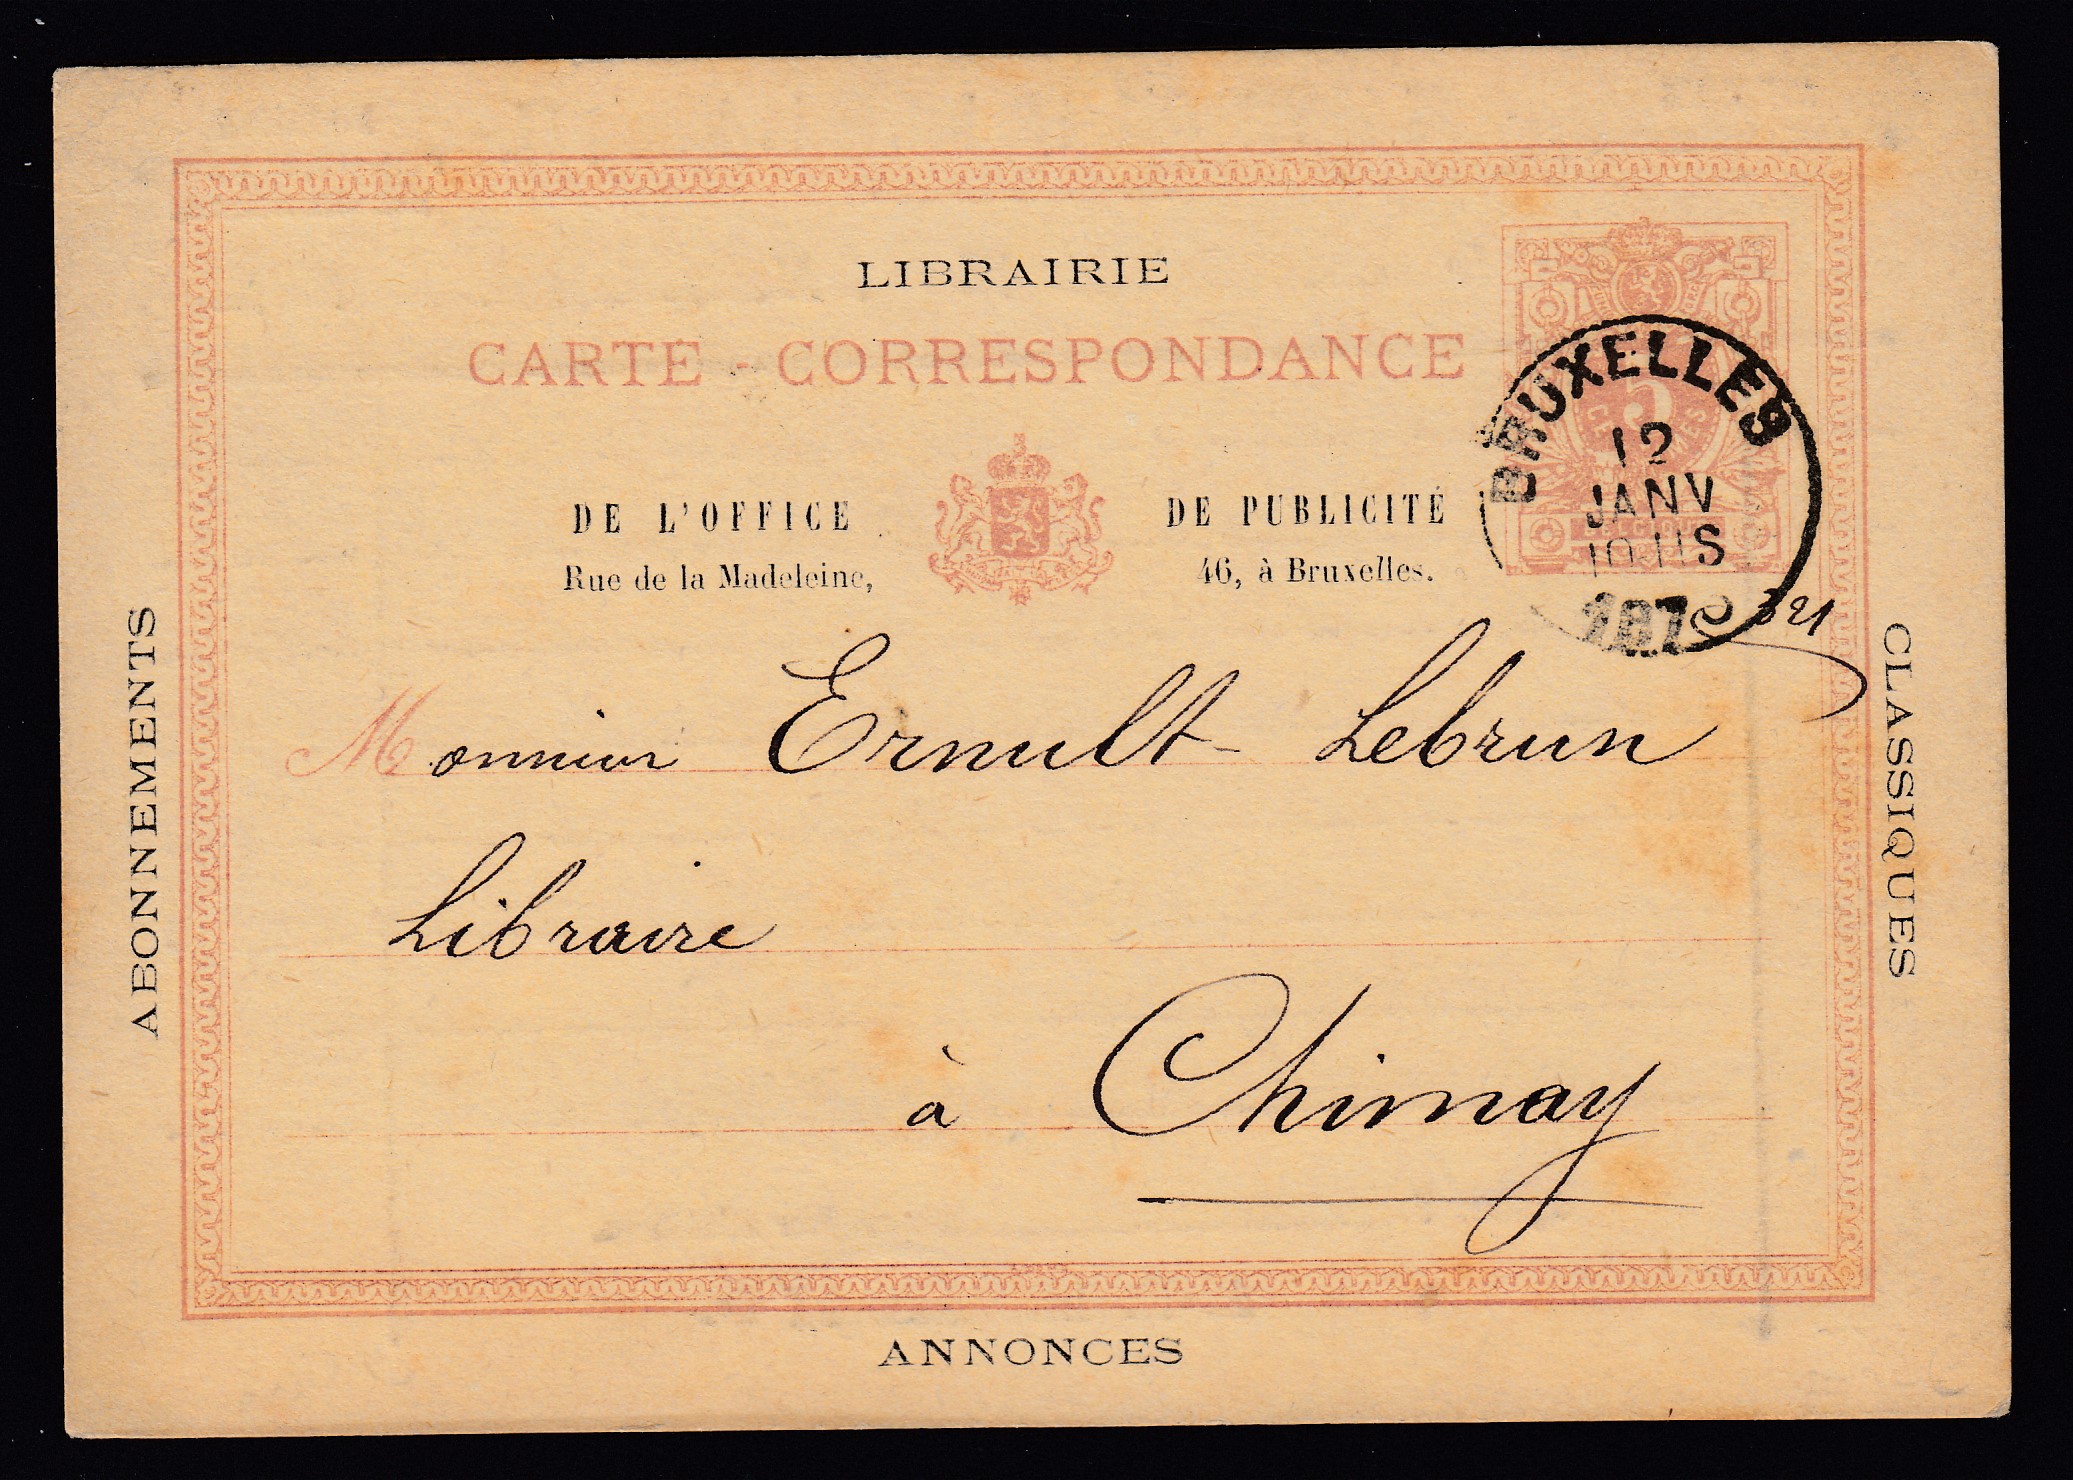 LIBRAIRIE
CARTE - CORRESPONDANCE
DE L'OFFICE DE PUBLICITÉ
Rue de la Madeleine, 46, à Bruxelles.
BRUXELLES
12
JANV
10 S
187
5
CENTIMES
BELGIQUE
321
Monsieur Ernult-Lebrun
Libraire
à Chimay
ABONNEMENTS
CLASSIQUES
ANNONCES